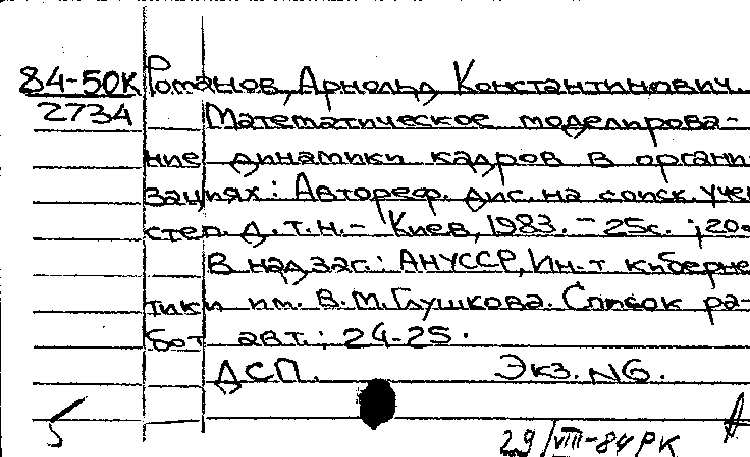 84-50К Романов, Арнольд Константинович.
2734 Математическое моделирова-
ние динамики кадров в органи
зациях: Автореф. дис. на соиск. учен
степ. д.т.н. - Киев, 1983. - 25с. ; 20
В надзаг.: АНУССР, Ин-т киберне
тики им. В.М. Глушкова. Список ра-
бот авт.: 24-25.
ДСП. Экз. N6.
5
29/VIII-84 РК